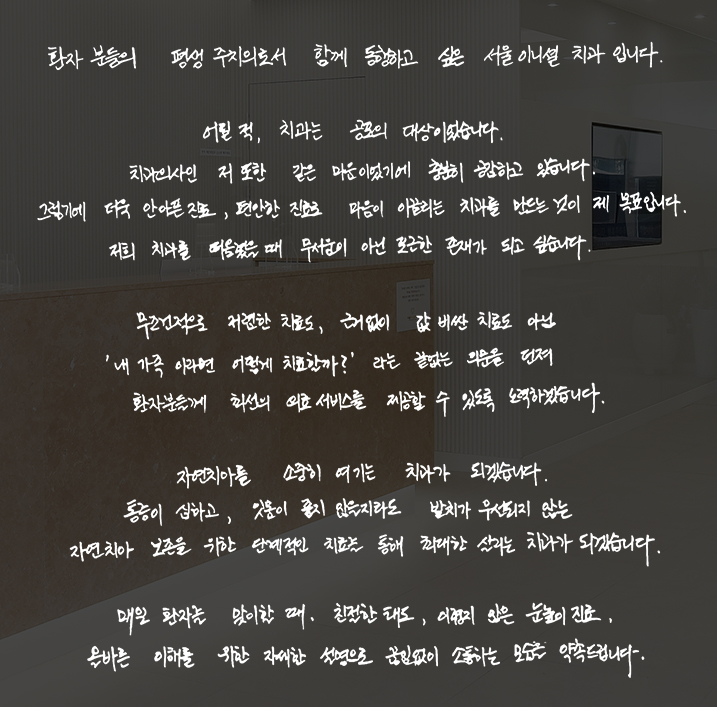 환자 분들의 평생 주치의로서 함께 동행하고 싶은 서울이니셜 치과 입니다.
어릴 적, 치과는 공포의 대상이었습니다.
치과의사인 저 또한 같은 마음이었기에 충분히 공감하고 있습니다.
그렇기에 더욱 안아픈 진료, 편안한 진료로 마음이 이끌리는 치과를 만드는 것이 제 목표입니다.
저희 치과를 떠올렸을 때 무서움이 아닌 포근한 존재가 되고 싶습니다.
무조건적으로 저렴한 치료도, 근거없이 값 비싼 치료도 아닌
'내 가족 이라면 어떻게 치료할까?' 라는 끝없는 의문을 던져
환자분들께 최선의 의료 서비스를 제공할 수 있도록 노력하겠습니다.
자연치아를 소중히 여기는 치과가 되겠습니다.
통증이 심하고, 잇몸이 좋지 않을지라도 발치가 우선되지 않는
자연치아 보존을 위한 단계적인 치료를 통해 최대한 살리는 치과가 되겠습니다.
매일 환자를 맞이할 때. 친절한 태도, 어렵지 않은 눈높이 진료,
올바른 이해를 위한 자세한 설명으로 끊임없이 소통하는 모습을 약속드립니다.